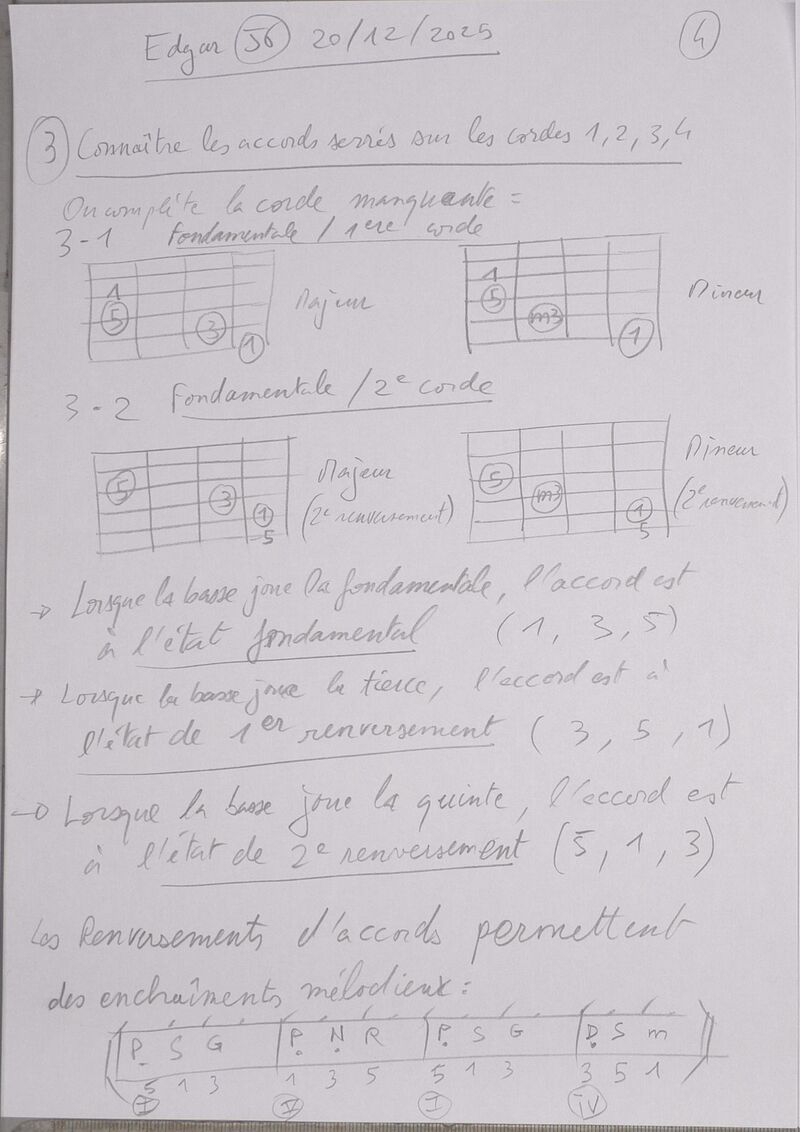 Edgar 56 20/12/2025
4
3 Connaître les accords serrés sur les cordes 1, 2, 3, 4
On complète la corde manquante =
3-1 Fondamentale / 1ere corde
1
5
3
1
Majeur
1
5
m3
1
Mineur
3-2 Fondamentale / 2e corde
5
3
1
5
Majeur
(2e renversement)
5
m3
1
5
Mineur
(2e renversement)
→ Lorsque la basse joue la fondamentale, l'accord est
à l'état fondamental (1, 3, 5)
→ Lorsque la basse joue la tierce, l'accord est à
l'état de 1er renversement (3, 5, 1)
→ Lorsque la basse joue la quinte, l'accord est
à l'état de 2e renversement (5, 1, 3)
Les Renversements d'accords permettent
des enchaîments mélodieux :
P S G P N R P S G D S m
5 1 3 1 3 5 5 1 3 3 5 1
I V I IV